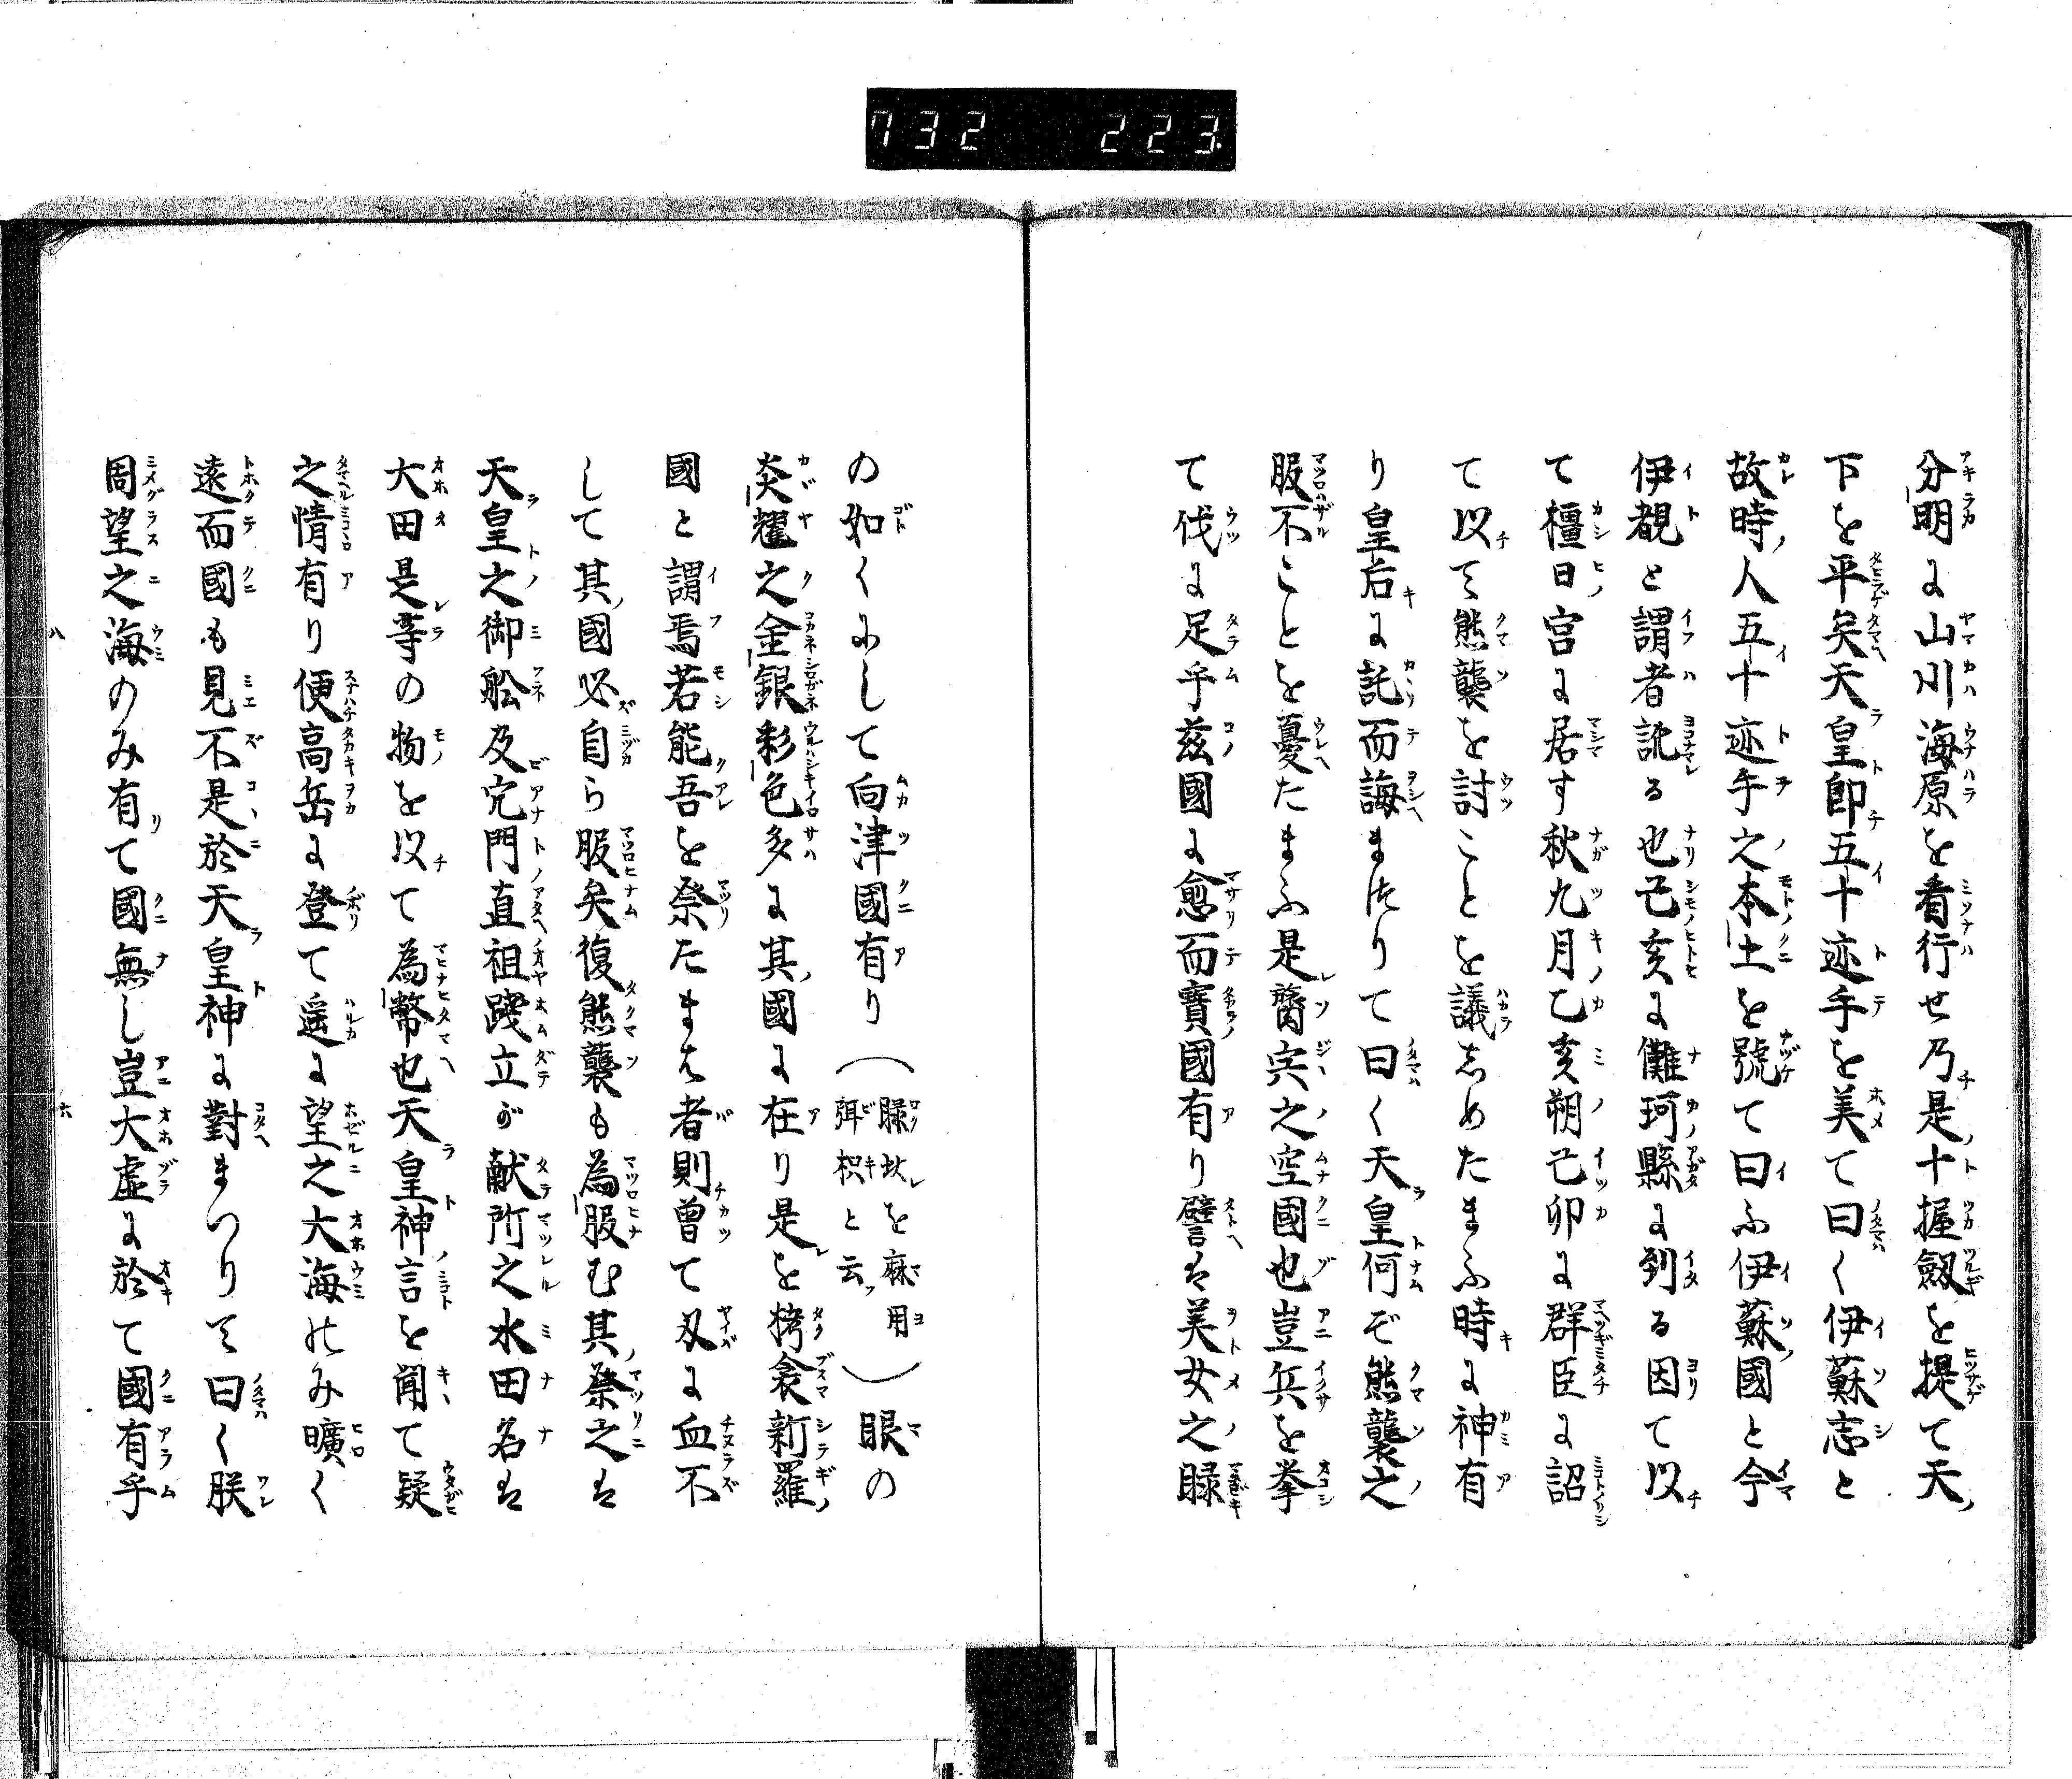 732 223
分明に山川海原を看行せ乃是十握劔を提て天
下を平矣天皇即五十迹手を美て曰く伊蘇志と
故時人五十迹手之本土を號て曰ふ伊蘇國と今
伊覩と謂者訛る也己亥に儺珂縣に到る因て以
て橿日宮に居す秋九月乙亥朔己卯に群臣に詔
て以て熊襲を討ことを議しめたまふ時に神有
り皇后に託而誨まつりて曰く天皇何ぞ熊襲之
服不ことを憂たまふ是膂宍之空國也豈兵を挙
て伐に足乎茲國に愈而寳國有り譬は美女之睩
の如くにして向津國有り(睩此を麻用弭枳と云)眼の
炎耀之金銀彩色多に其國に在り是を栲衾新羅
國と謂焉若能吾を祭たまは者則曽て刄に血不
して其國必自ら服矣復熊襲も為服む其祭之は
天皇之御舩及穴門直祖踐立が献所之水田名は
大田是等の物を以て為幣也天皇神言を聞て疑
之情有り便高岳に登て遥に望之大海のみ曠く
遠而國も見不是於天皇神に對まつりて曰く朕
周望之海のみ有りて國無し豈大虚に於て國有乎
八 六